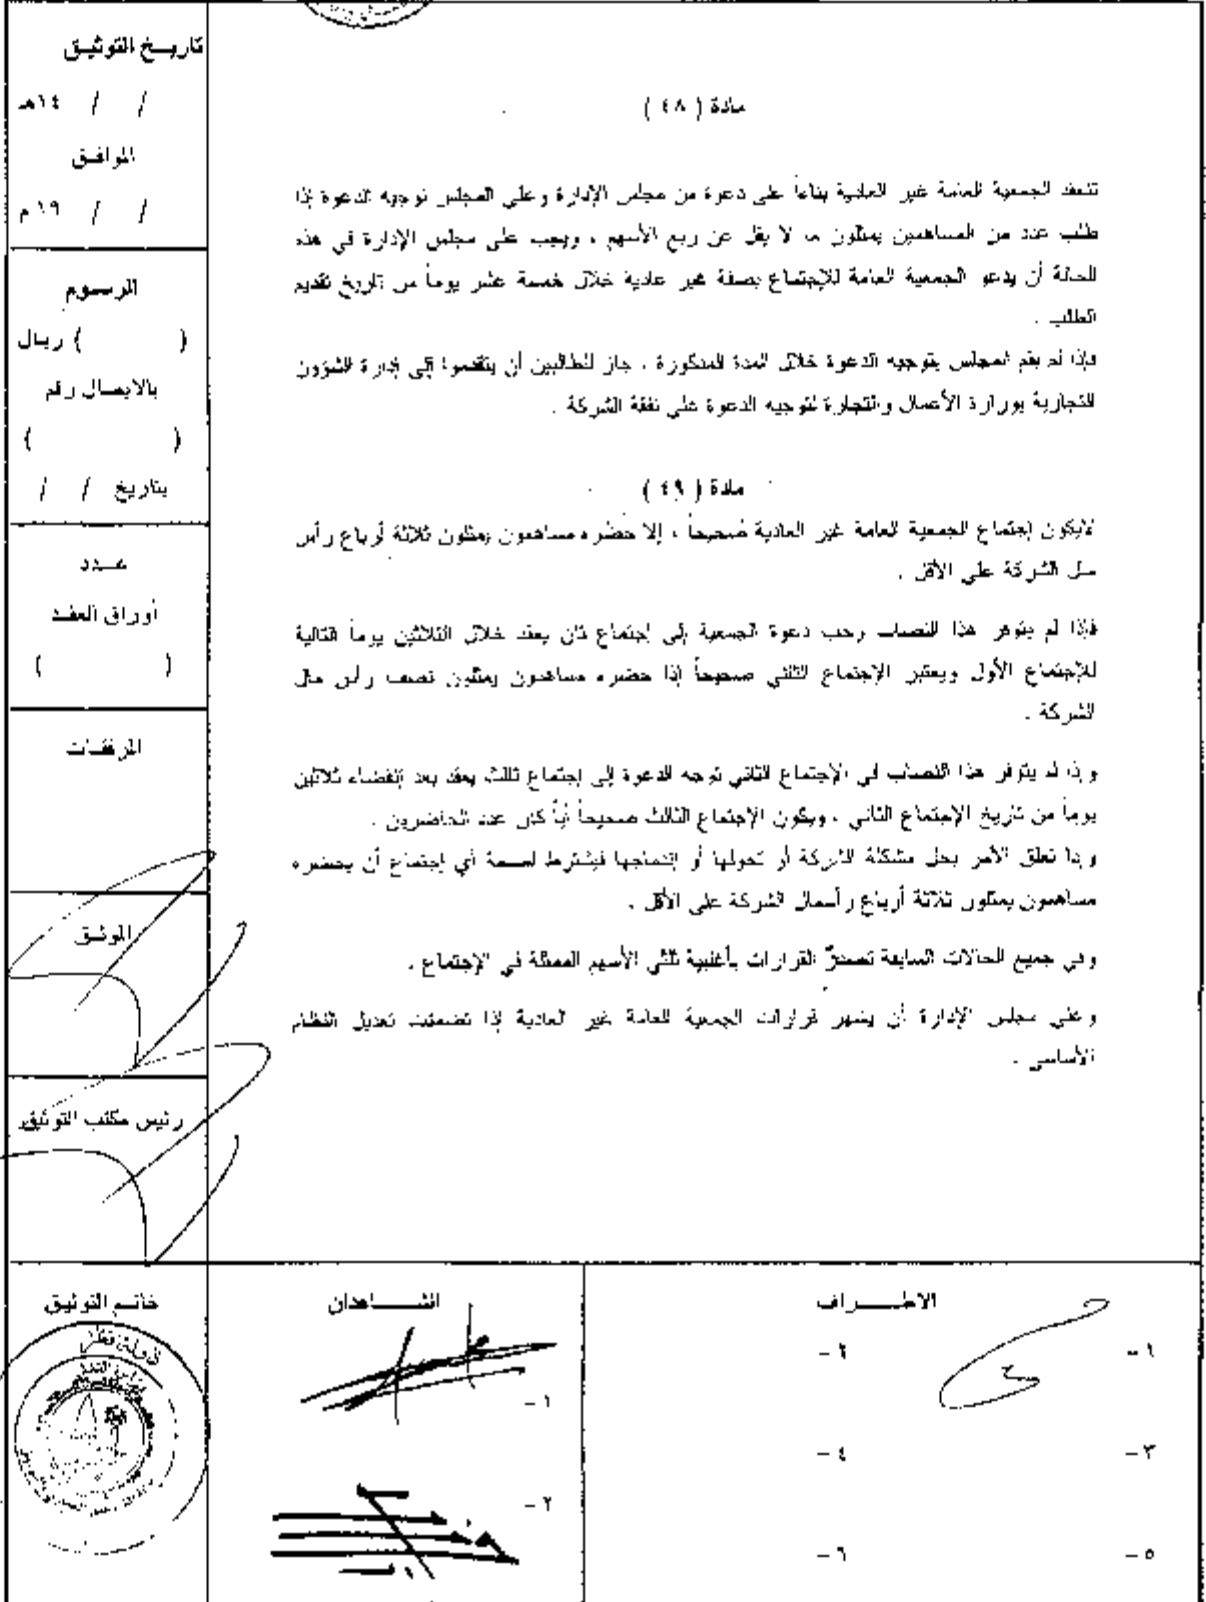 تاريخ التوثيق
/ / ١٤هـ
الموافق
/ / ١٩م
الرسوم
( ) ريال
بالايصال رقم
( )
بتاريخ / /
عدد
أوراق العقد
( )
المرفقات
الموثق
رئيس مكتب التوثيق
خاتم التوثيق
دولة قطر
مادة ( ٤٨ )
تنعقد الجمعية العامة غير العادية بناءاً على دعوة من مجلس الإدارة وعلى المجلس توجيه الدعوة إذا
طلب عدد من المساهمين يمثلون ما لا يقل عن ربع الأسهم ، ويجب على مجلس الإدارة في هذه
الحالة أن يدعو الجمعية العامة للإجتماع بصفة غير عادية خلال خمسة عشر يوماً من تاريخ تقديم
الطلب .
فإذا لم يقم المجلس بتوجيه الدعوة خلال المدة المذكورة ، جاز للطالبين أن يتقدموا إلى إدارة الشؤون
التجارية بوزارة الأعمال والتجارة لتوجيه الدعوة على نفقة الشركة .
مادة ( ٤٩ )
لايكون إجتماع الجمعية العامة غير العادية صحيحاً ، إلا حضره مساهمون يمثلون ثلاثة أرباع رأس
مال الشركة على الأقل .
فإذا لم يتوفر هذا النصاب وجب دعوة الجمعية إلى إجتماع ثان يعقد خلال الثلاثين يوماً التالية
للإجتماع الأول ويعتبر الإجتماع الثاني صحيحاً إذا حضره مساهمون يمثلون نصف رأس مال
الشركة .
وإذا لم يتوفر هذا النصاب في الإجتماع الثاني توجه الدعوة إلى إجتماع ثالث يعقد بعد إنقضاء ثلاثين
يوماً من تاريخ الإجتماع الثاني ، ويكون الإجتماع الثالث صحيحاً أياً كان عدد الحاضرين .
وإذا تعلق الأمر بحل مشكلة الشركة أو تحولها أو إندماجها فيشترط لصحة أي إجتماع أن يحضره
مساهمون يمثلون ثلاثة أرباع رأسمال الشركة على الأقل .
وفي جميع الحالات السابقة تصدر القرارات بأغلبية ثلثي الأسهم الممثلة في الإجتماع .
وعلى مجلس الإدارة أن يشهر قرارات الجمعية العامة غير العادية إذا تضمنت تعديل النظام
الأساسي .
الاطراف
١ -
٢ -
٣ -
٤ -
٥ -
٦ -
الشاهدان
١ -
٢ -